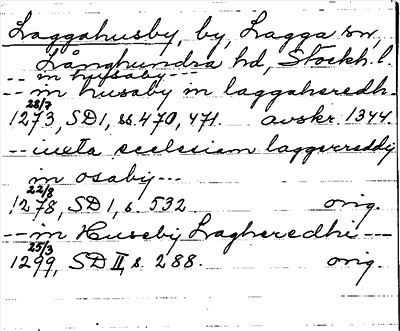 Laggahusby, by, Lagga sn,
Långhundra hd, Stockh. l.
-- in husaby ---
-- in husaby in laggaheredh-
28/7
1273, SD I, ss. 470, 471. avskr. 1344.
-- iuxta ecclesiam laggerreddy
in osaby ---
22/8
1278, SD I, s. 532 orig.
-- in Huseby Lagheredhi ---
25/3
1299, SD II, s. 288. orig.